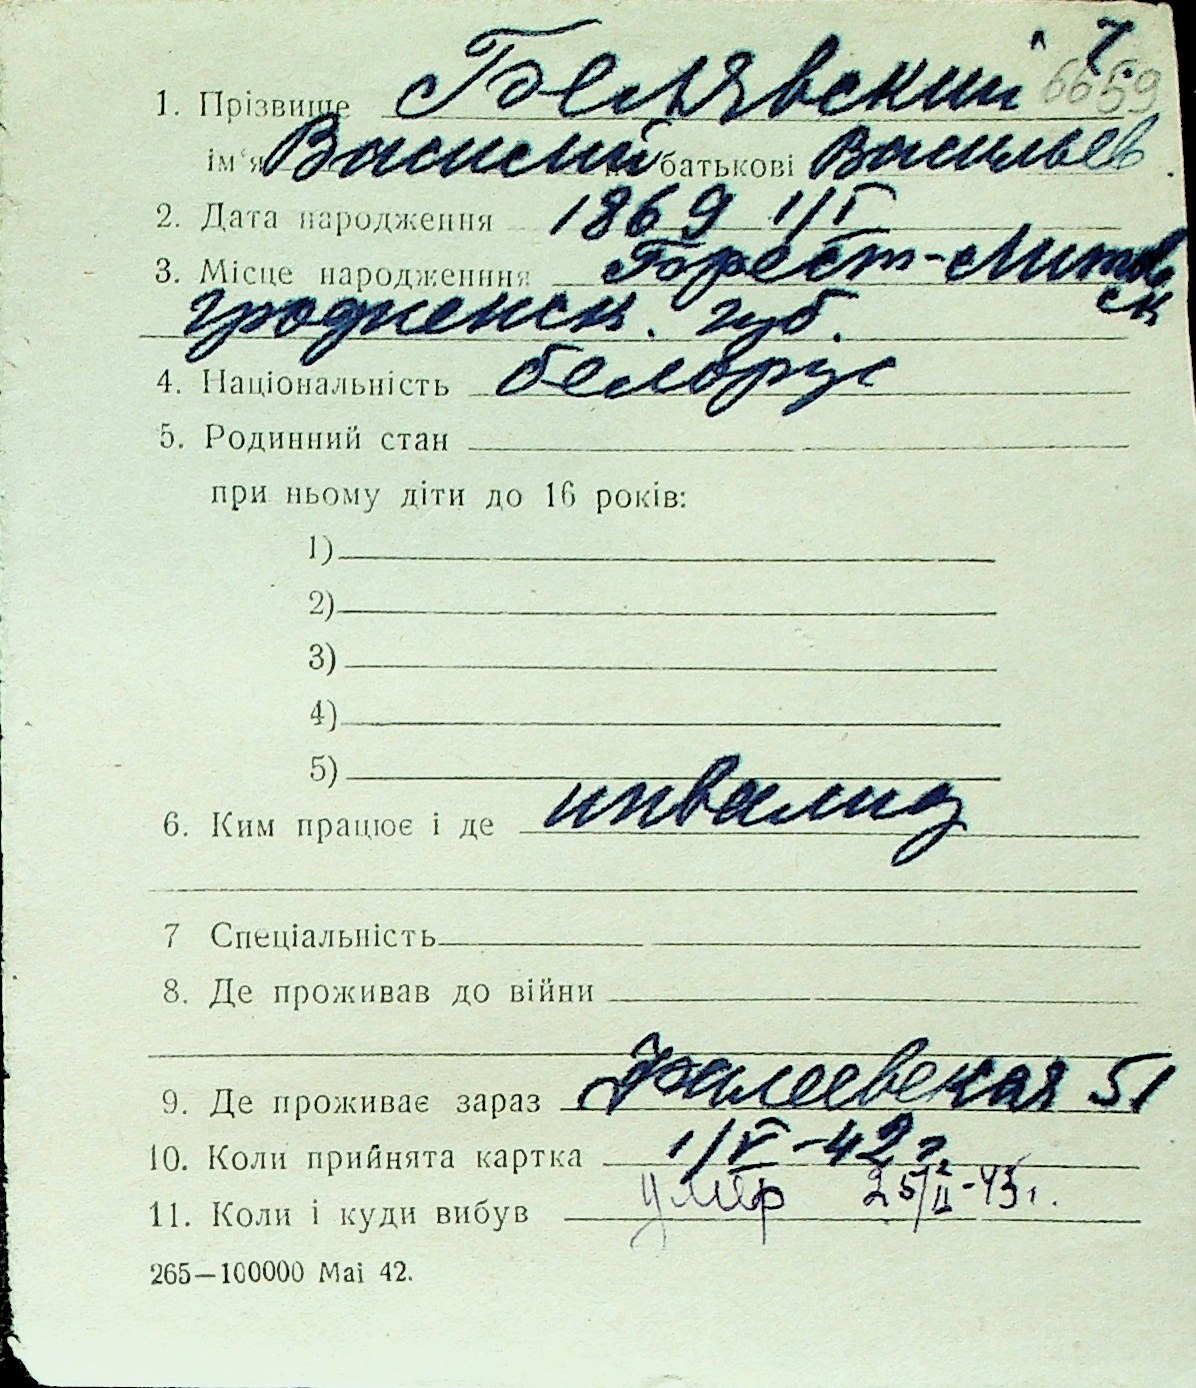 7
1. Прізвище Белявский 6659
ім'я Василий по батькові Васильев.
2. Дата народження 1869 1/I
3. Місце народженння Брест-Литовск
гродненск. губ.
4. Національність белорус
5. Родинний стан
при ньому діти до 16 років:
1)
2)
3)
4)
5)
6. Ким працює і де инвалид
7 Спеціальність
8. Де проживав до війни
9. Де проживає зараз Фалеевская 51
10. Коли прийнята картка 1/V-42 г.
11. Коли і куди вибув умер 25/II-43 г.
265—100000 Mai 42.